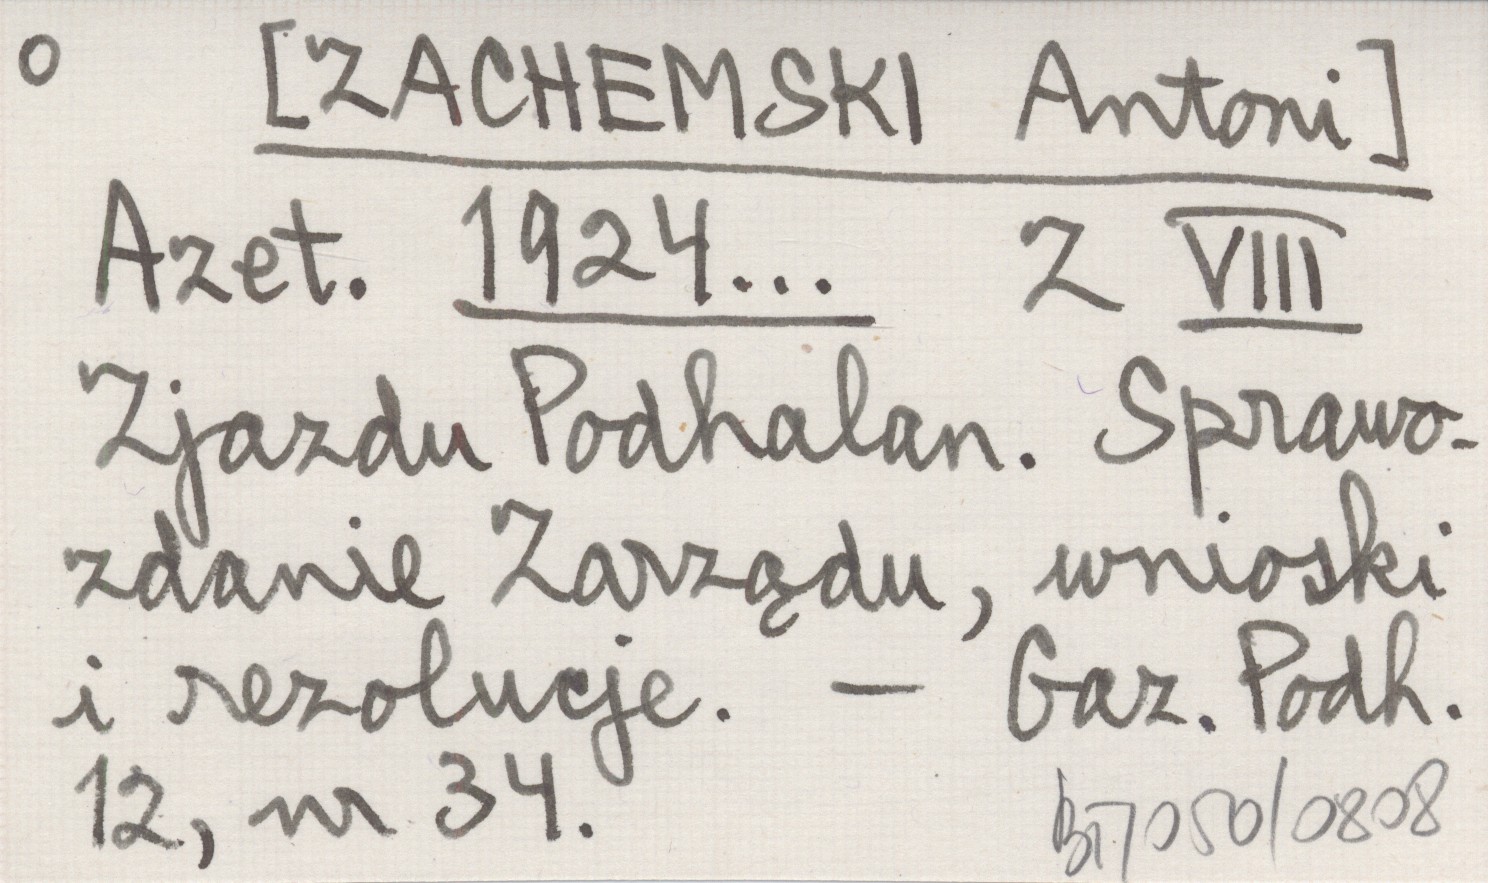 o [ZACHEMSKI Antoni]
Azet. 1924... Z VIII
Zjazdu Podhalan. Sprawo-
zdanie Zarządu, wnioski
i rezolucje. — Gaz. Podh.
12, nr 34.
050/0808